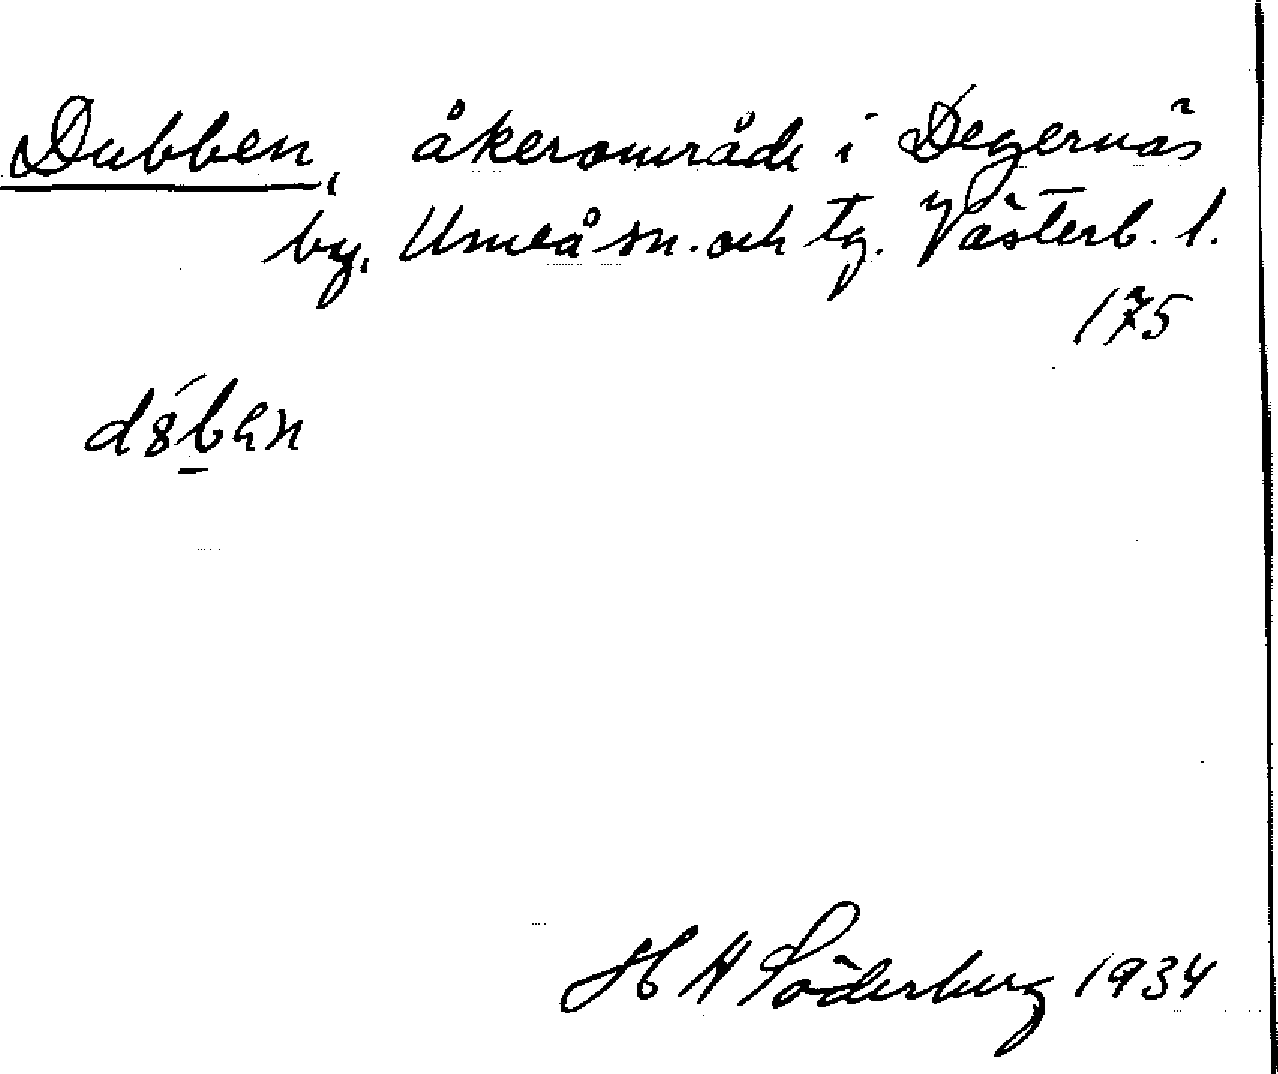 Dubben, åkerområde i Degernäs
by, Umeå sn. och tg. Västerb. l.
175
H A Söderberg 1934